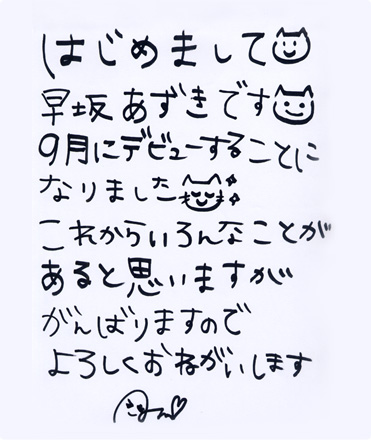 はじめまして
早坂あずきです
9月にデビューすることに
なりました
これからいろんなことが
あると思いますが
がんばりますので
よろしくおねがいします